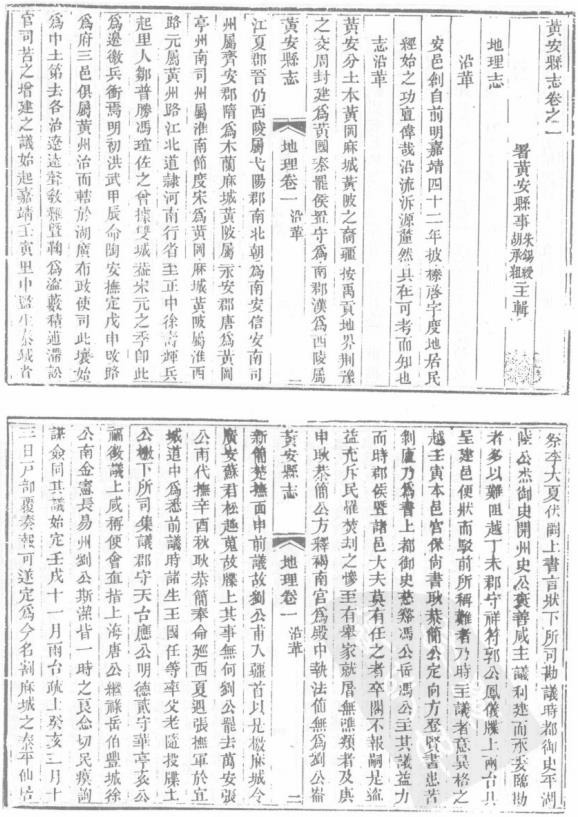 黃安縣志卷之一
署黃安縣事朱錫綬胡承祖主輯
地理志
沿革
安邑創自前明嘉靖四十二年披榛啓宇度地居民
經始之功亶偉哉沿流泝源釐然具在可考而知也
志沿革
黃安分土木黃岡麻城黃陂之裔疆按禹貢地界荆豫
之交周封建爲黃國秦罷侯置守爲南郡漢爲西陵屬
黃安縣志
地理卷一
沿革
一
江夏郡晉仍西陵屬弋陽郡南北朝爲南安信安南司
州屬齊安郡隋爲木蘭麻城黃陂屬永安郡唐爲黃岡
亭州南司州屬淮南節度宋爲黃岡麻城黃陂屬淮西
路元屬黃州路江北道隸河南行省至正中徐壽輝兵
起里人鄒普勝馮瑄佐之曾據雙城葢宋元之季卽此
爲邊徼兵衝焉明初洪武甲辰命陶安撫定戊申改路
爲府三邑俱屬黃州治而轄於湖廣布政使司此壤始
爲中土第去各治遼遠聲敎難曁鞠爲盜藪積逋滯訟
官司苦之增建之議始起嘉靖壬寅里中
祭李大夏伏闕上書言狀下所司勘議時都御史平湖
陸公杰御史開州史公褒善咸主議利建而承委臨勘
者多以難阻越丁未郡守祥符郭公鳳儀牒上兩台具
呈建邑便狀而駁前所稱難者乃時主議者意吳格之
越壬寅本邑官保尚書耿恭簡公定向方登賢書患苦
剝廬乃爲書上都御史慈谿馮公岳馮公主其議益力
而時郡侯曁諸邑大夫莫有任之者卒閣不報嗣是盜
益尤斥民罹焚刦之慘至有舉家就屠無譙類者及庚
申耿恭簡公方釋褐南官爲殿中執法簡無爲劉公崙
黃安縣志
地理卷一
沿革
二
新簡楚撫面申前議故劉公甫入疆首以是檄麻城令
廣安蘇君松趣蒐故牒上其事無何劉公罷去萬安張
公雨代撫辛酉秋耿恭簡奉命廵西夏遇張撫軍於宜
城道中爲悉前議時諸生王國任等率父老隨投牒土
公檄下所司集議郡守天台應公明德貳守華亭亥公
福後議上咸稱便會直指上海唐公繼祿岳伯豐城徐
公南金憲長易州劉公斯潔皆一時之良念切民瘼詢
謀僉同其議始定壬戌十一月兩台疏上癸亥三月十
三日戶部覆奏報可遂定爲今名割麻城之泰平仙居